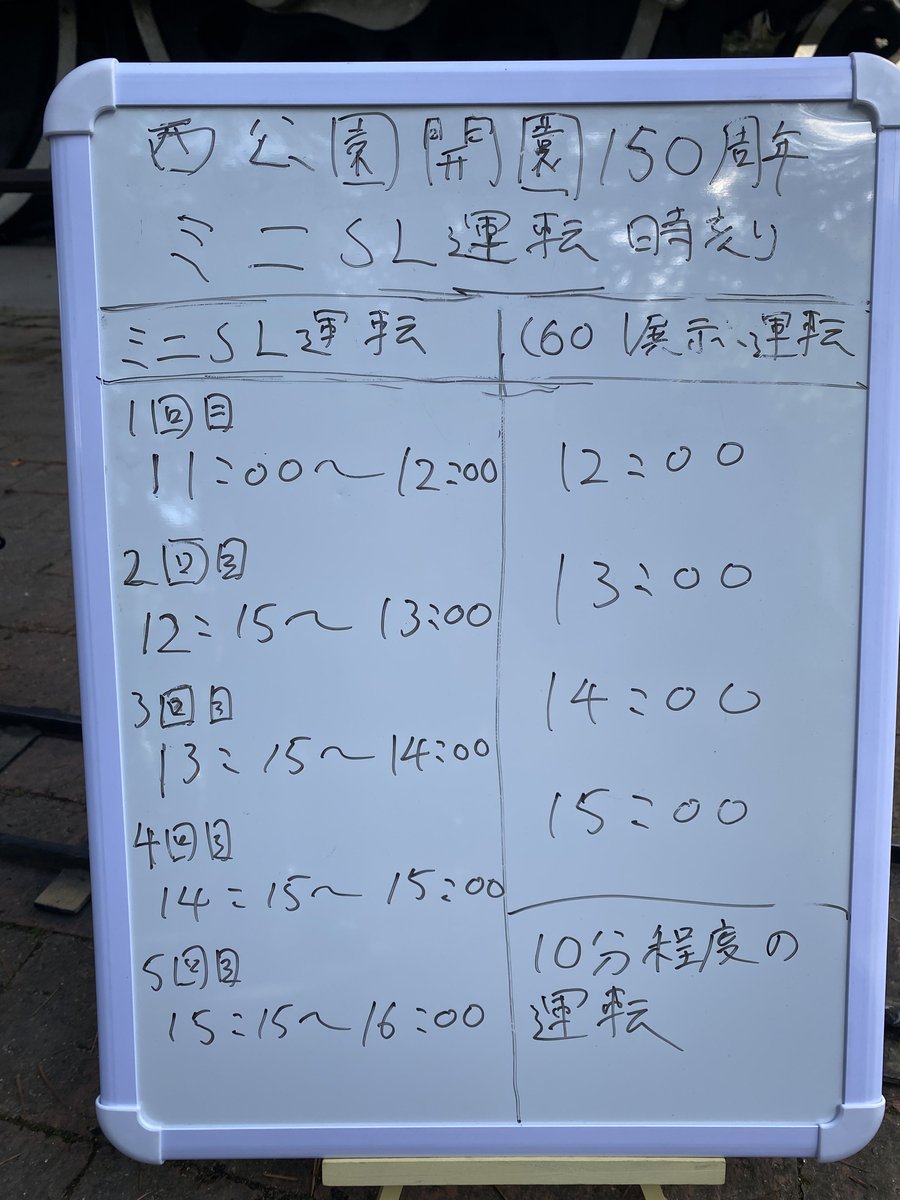 西公園開園150周年
ミニSL運転時刻
ミニSL運転
C601展示運転
1回目
11:00〜12:00
2回目
12:15〜13:00
3回目
13:15〜14:00
4回目
14:15〜15:00
5回目
15:15〜16:00
12:00
13:00
14:00
15:00
10分程度の
運転